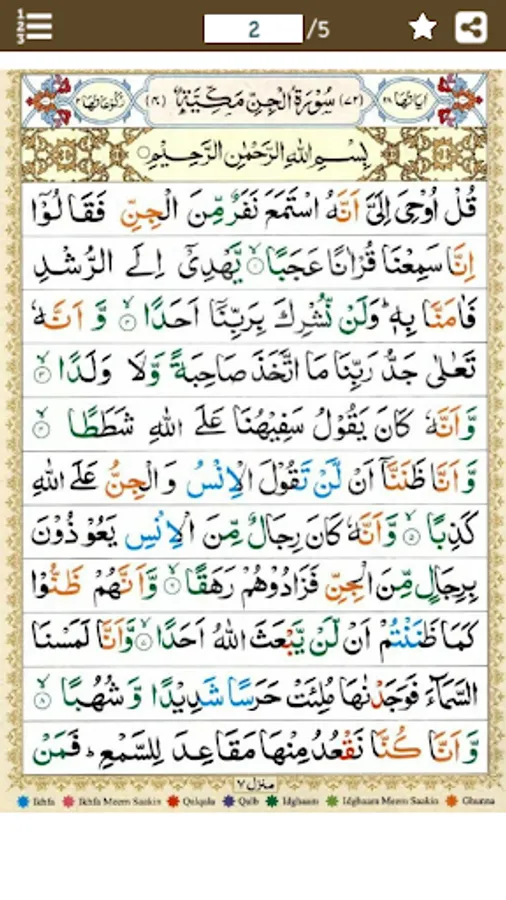 2 /5
اٰيَاتُهَا ٢٨ (٧٢) سُوْرَةُ الْجِنِّ مَكِّيَّةٌ (٤٠) رُكُوْعَاتُهَا ٢
بِسْمِ اللهِ الرَّحْمٰنِ الرَّحِيْمِ
قُلْ اُوْحِىَ اِلَىَّ اَنَّهُ اسْتَمَعَ نَفَرٌ مِّنَ الْجِنِّ فَقَالُوْۤا
اِنَّا سَمِعْنَا قُرْاٰنًا عَجَبًا ۙ‏﴿۱﴾ يَّهْدِىْۤ اِلَى الرُّشْدِ
فَاٰمَنَّا بِهٖ ؕ وَلَنْ نُّشْرِكَ بِرَبِّنَاۤ اَحَدًا ۙ‏﴿۲﴾ وَّاَنَّهٗ
تَعٰلٰى جَدُّ رَبِّنَا مَا اتَّخَذَ صَاحِبَةً وَّلَا وَلَدًا ۙ‏﴿۳﴾
وَّاَنَّهٗ كَانَ يَقُوْلُ سَفِيْهُنَا عَلَى اللهِ شَطَطًا ۙ‏﴿۴﴾
وَّاَنَّا ظَنَنَّاۤ اَنْ لَّنْ تَقُوْلَ الْاِنْسُ وَالْجِنُّ عَلَى اللهِ
كَذِبًا ۙ‏﴿۵﴾ وَّاَنَّهٗ كَانَ رِجَالٌ مِّنَ الْاِنْسِ يَعُوْذُوْنَ
بِرِجَالٍ مِّنَ الْجِنِّ فَزَادُوْهُمْ رَهَقًا ۙ‏﴿۶﴾ وَّاَنَّهُمْ ظَنُّوْا
كَمَا ظَنَنْتُمْ اَنْ لَّنْ يَّبْعَثَ اللهُ اَحَدًا ۙ‏﴿۷﴾ وَّاَنَّا لَمَسْنَا
السَّمَآءَ فَوَجَدْنٰهَا مُلِئَتْ حَرَسًا شَدِيْدًا وَّشُهُبًا ۙ‏﴿۸﴾
وَّاَنَّا كُنَّا نَقْعُدُ مِنْهَا مَقَاعِدَ لِلسَّمْعِ ؕ فَمَنْ
منزل ٧
Ikhfa Ikhfa Meem Saakin Qalqala Qalb Idghaam Idghaam Meem Saakin Ghunna